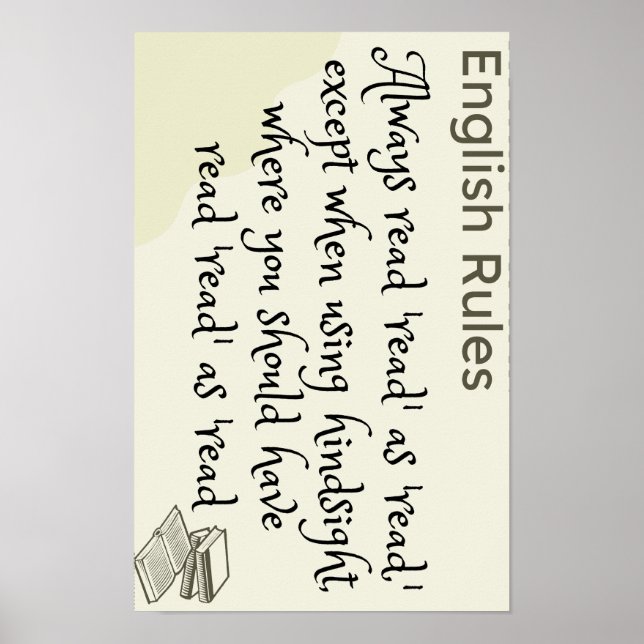 English Rules
Always read 'read' as 'read,'
except when using hindsight,
where you should have
read 'read' as 'read